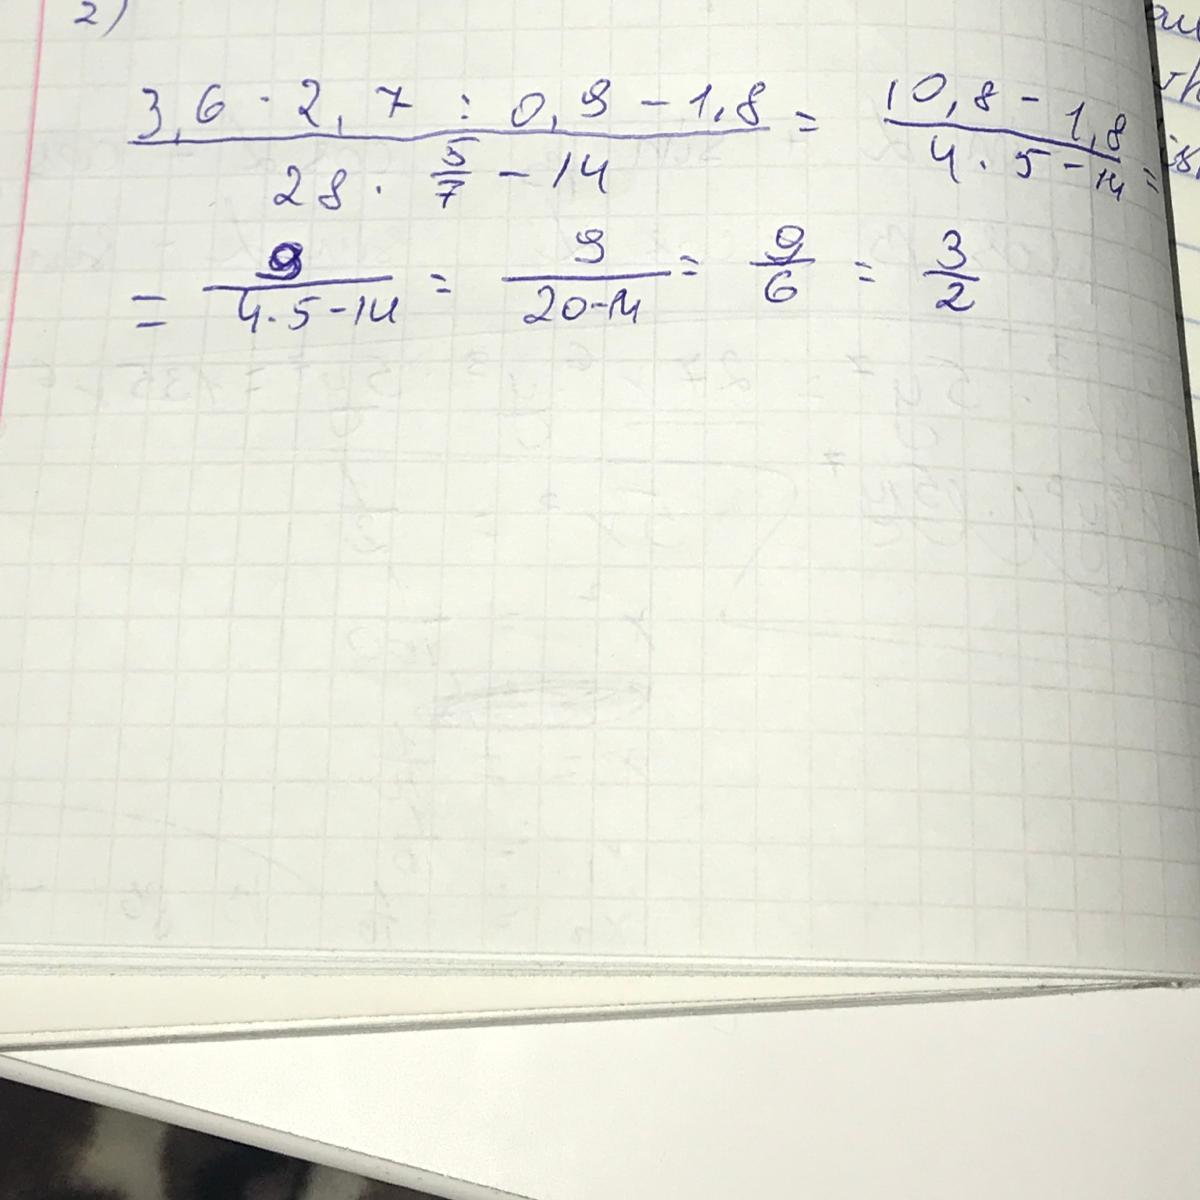 2)
3,6 · 2,7 : 0,9 - 1,8 / 28 · 5/7 - 14 = 10,8 - 1,8 / 4 · 5 - 14 =
= 9 / 4 · 5 - 14 = 9 / 20 - 14 = 9/6 = 3/2